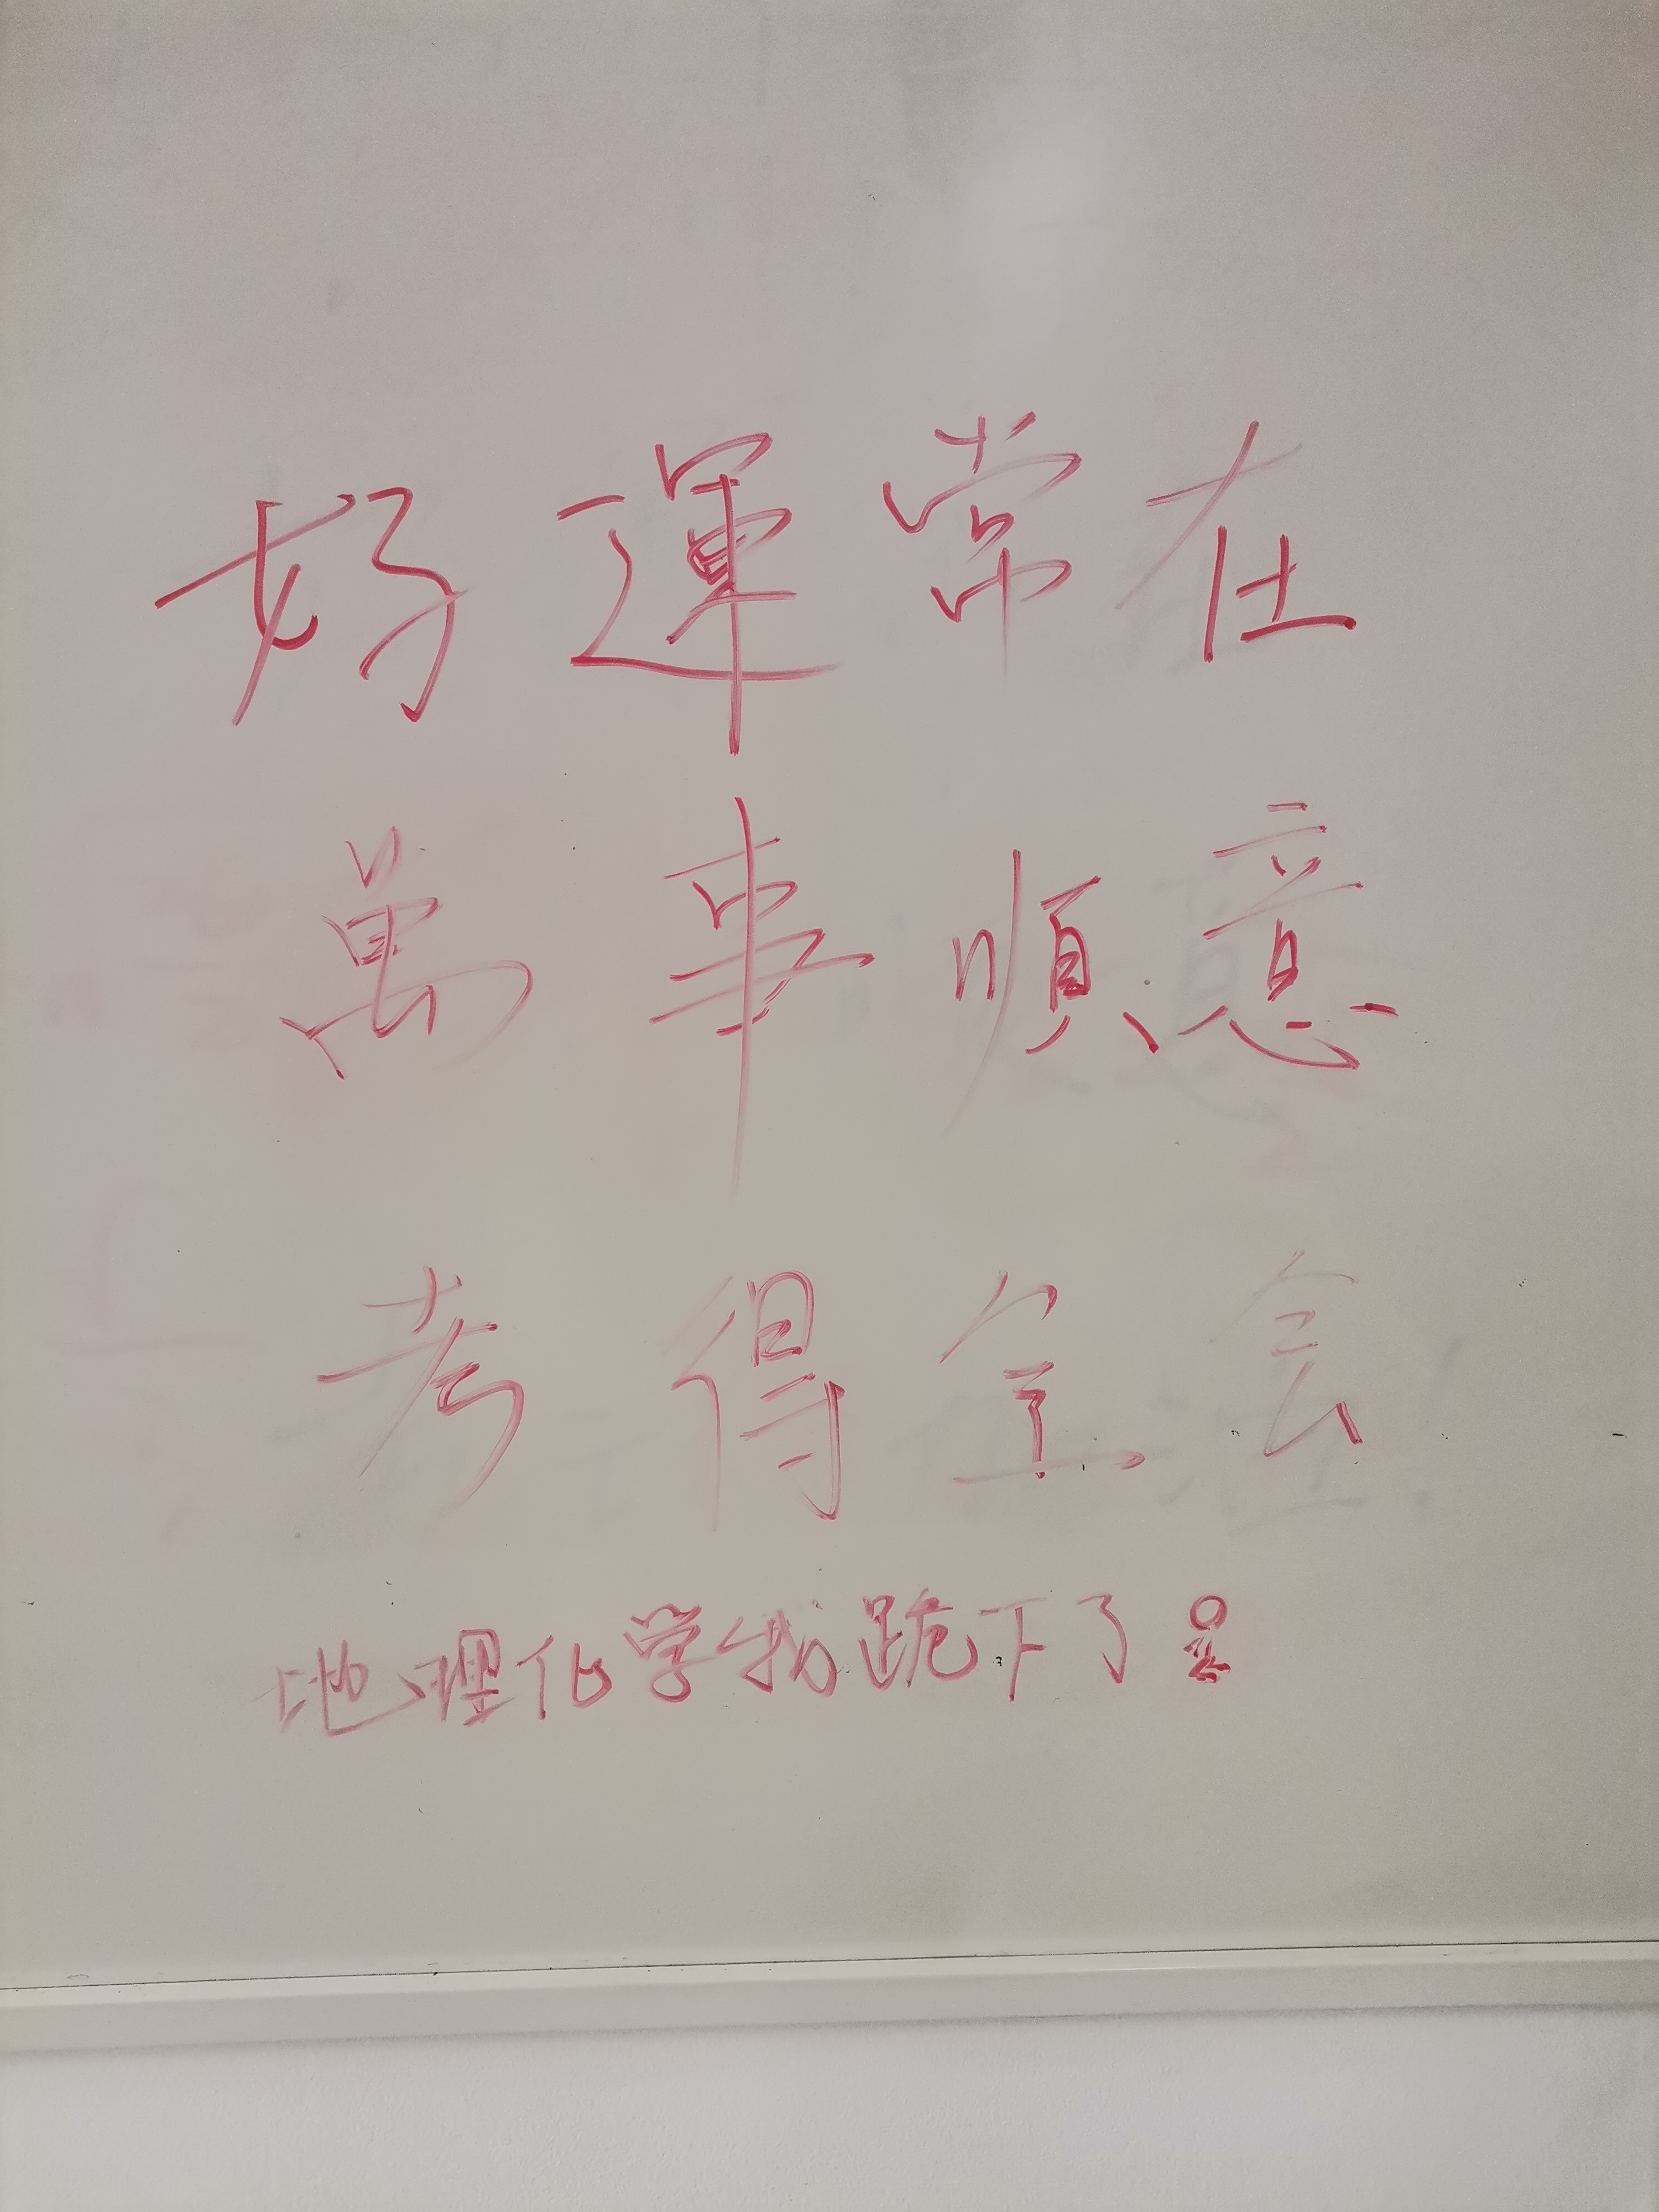 好運常在
萬事順意
考得全会
地理化学我跪下了